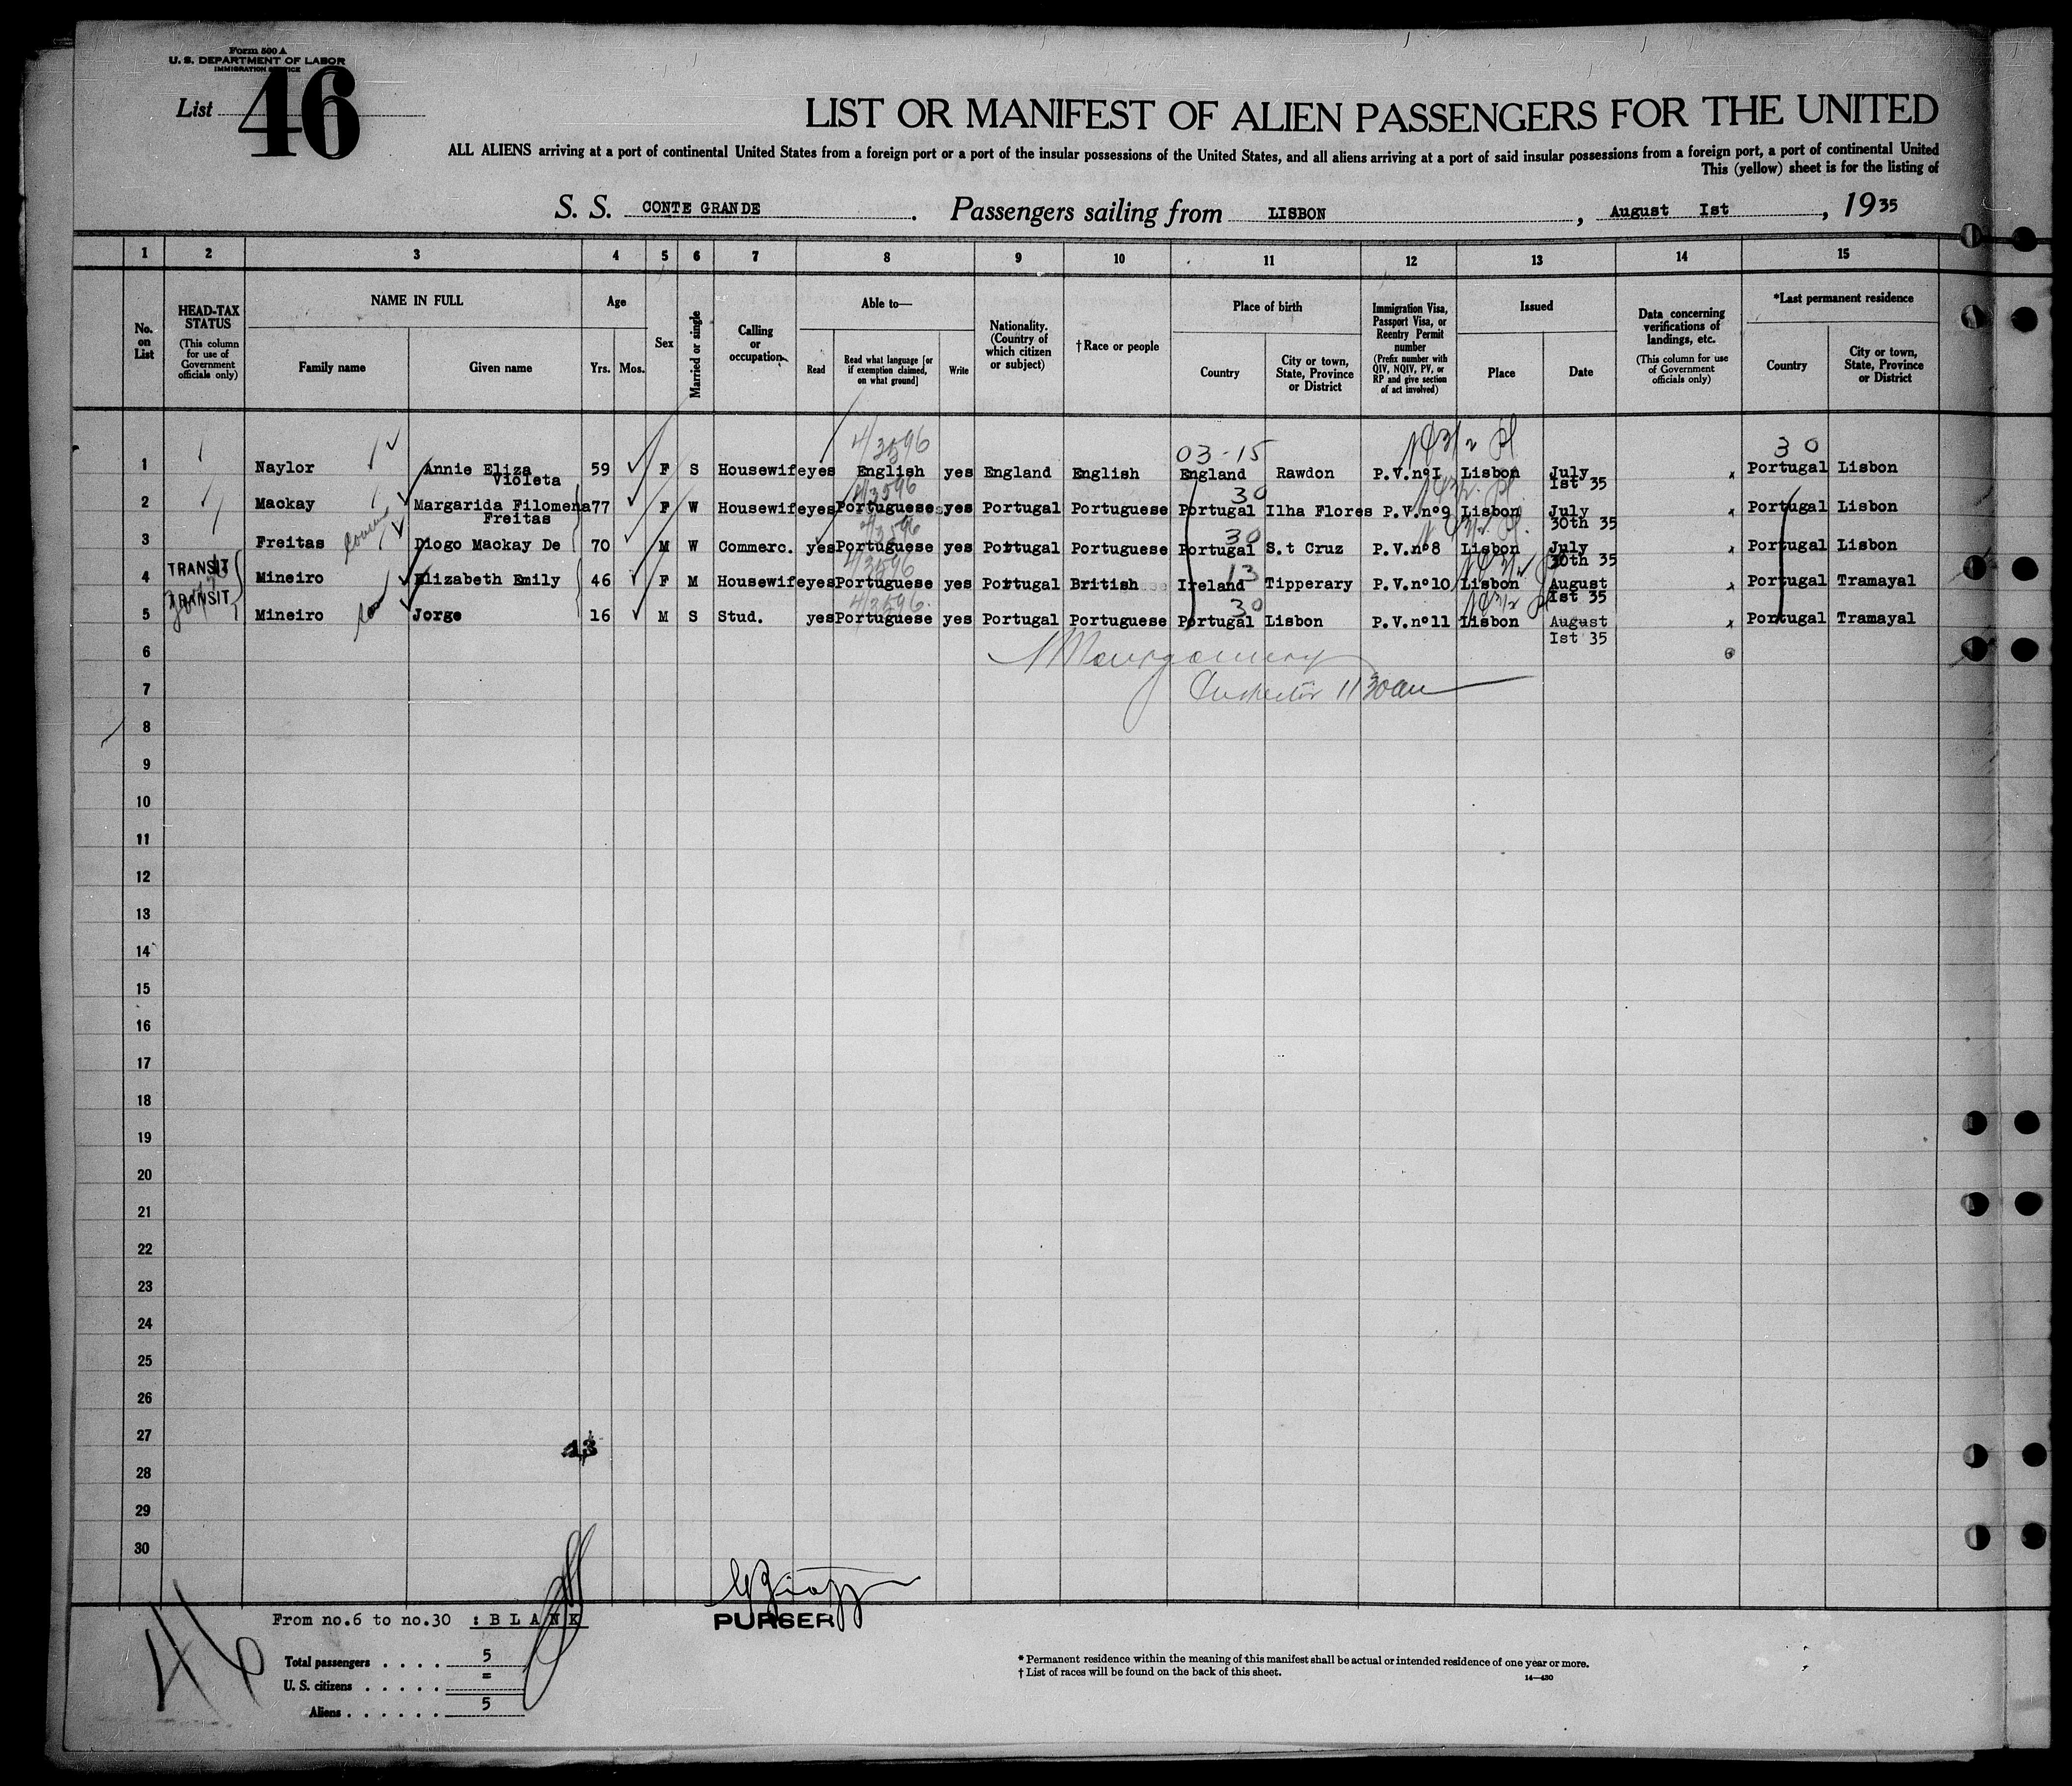 Form 500 A
U. S. DEPARTMENT OF LABOR
IMMIGRATION SERVICE
List 46
LIST OR MANIFEST OF ALIEN PASSENGERS FOR THE UNITED
ALL ALIENS arriving at a port of continental United States from a foreign port or a port of the insular possessions of the United States, and all aliens arriving at a port of said insular possessions from a foreign port, a port of continental United
This (yellow) sheet is for the listing of
S. S. CONTE GRANDE . Passengers sailing from LISBON , August Ist , 1935
1 2 3 4 5 6 7 8 9 10 11 12 13 14 15
No. on List
HEAD-TAX STATUS (This column for use of Government officials only)
NAME IN FULL
Family name
Given name
Age
Yrs. Mos.
Sex
Married or single
Calling or occupation
Able to—
Read
Read what language [or if exemption claimed, on what ground]
Write
Nationality. (Country of which citizen or subject)
†Race or people
Place of birth
Country
City or town, State, Province or District
Immigration Visa, Passport Visa, or Reentry Permit number (Prefix number with QIV, NQIV, PV, or RP and give section of act involved)
Issued
Place
Date
Data concerning verifications of landings, etc. (This column for use of Government officials only)
*Last permanent residence
Country
City or town, State, Province or District
4/3596 03-15 30
1 Naylor Annie Eliza Violeta 59 F S Housewife yes English yes England English England Rawdon P.V.nºI Lisbon July Ist 35 Portugal Lisbon
4/3596 30
2 Mackay Margarida Filomena Freitas 77 F W Housewife yes Portuguese yes Portugal Portuguese Portugal Ilha Flores P.V.nº9 Lisbon July 30th 35 Portugal Lisbon
4/3596 30
3 Freitas Diogo Mackay De 70 M W Commerc. yes Portuguese yes Portugal Portuguese Portugal S.t Cruz P.V.nº8 Lisbon July 30th 35 Portugal Lisbon
4/3596 13
4 TRANSIT Mineiro Elizabeth Emily 46 F M Housewife yes Portuguese yes Portugal British Ireland Tipperary P.V.nº10 Lisbon August Ist 35 Portugal Tramayal
4/3596 30
5 TRANSIT Mineiro Jorge 16 M S Stud. yes Portuguese yes Portugal Portuguese Portugal Lisbon P.V.nº11 Lisbon August Ist 35 Portugal Tramayal
6
Inspector 11 30am
7
8
9
10
11
12
13
14
15
16
17
18
19
20
21
22
23
24
25
26
27
28
29
30
From no.6 to no.30 : B L A N K
PURSER
46
Total passengers . . . . 5
U. S. citizens . . . . . =
Aliens . . . . . . 5
* Permanent residence within the meaning of this manifest shall be actual or intended residence of one year or more.
† List of races will be found on the back of this sheet.
14—430